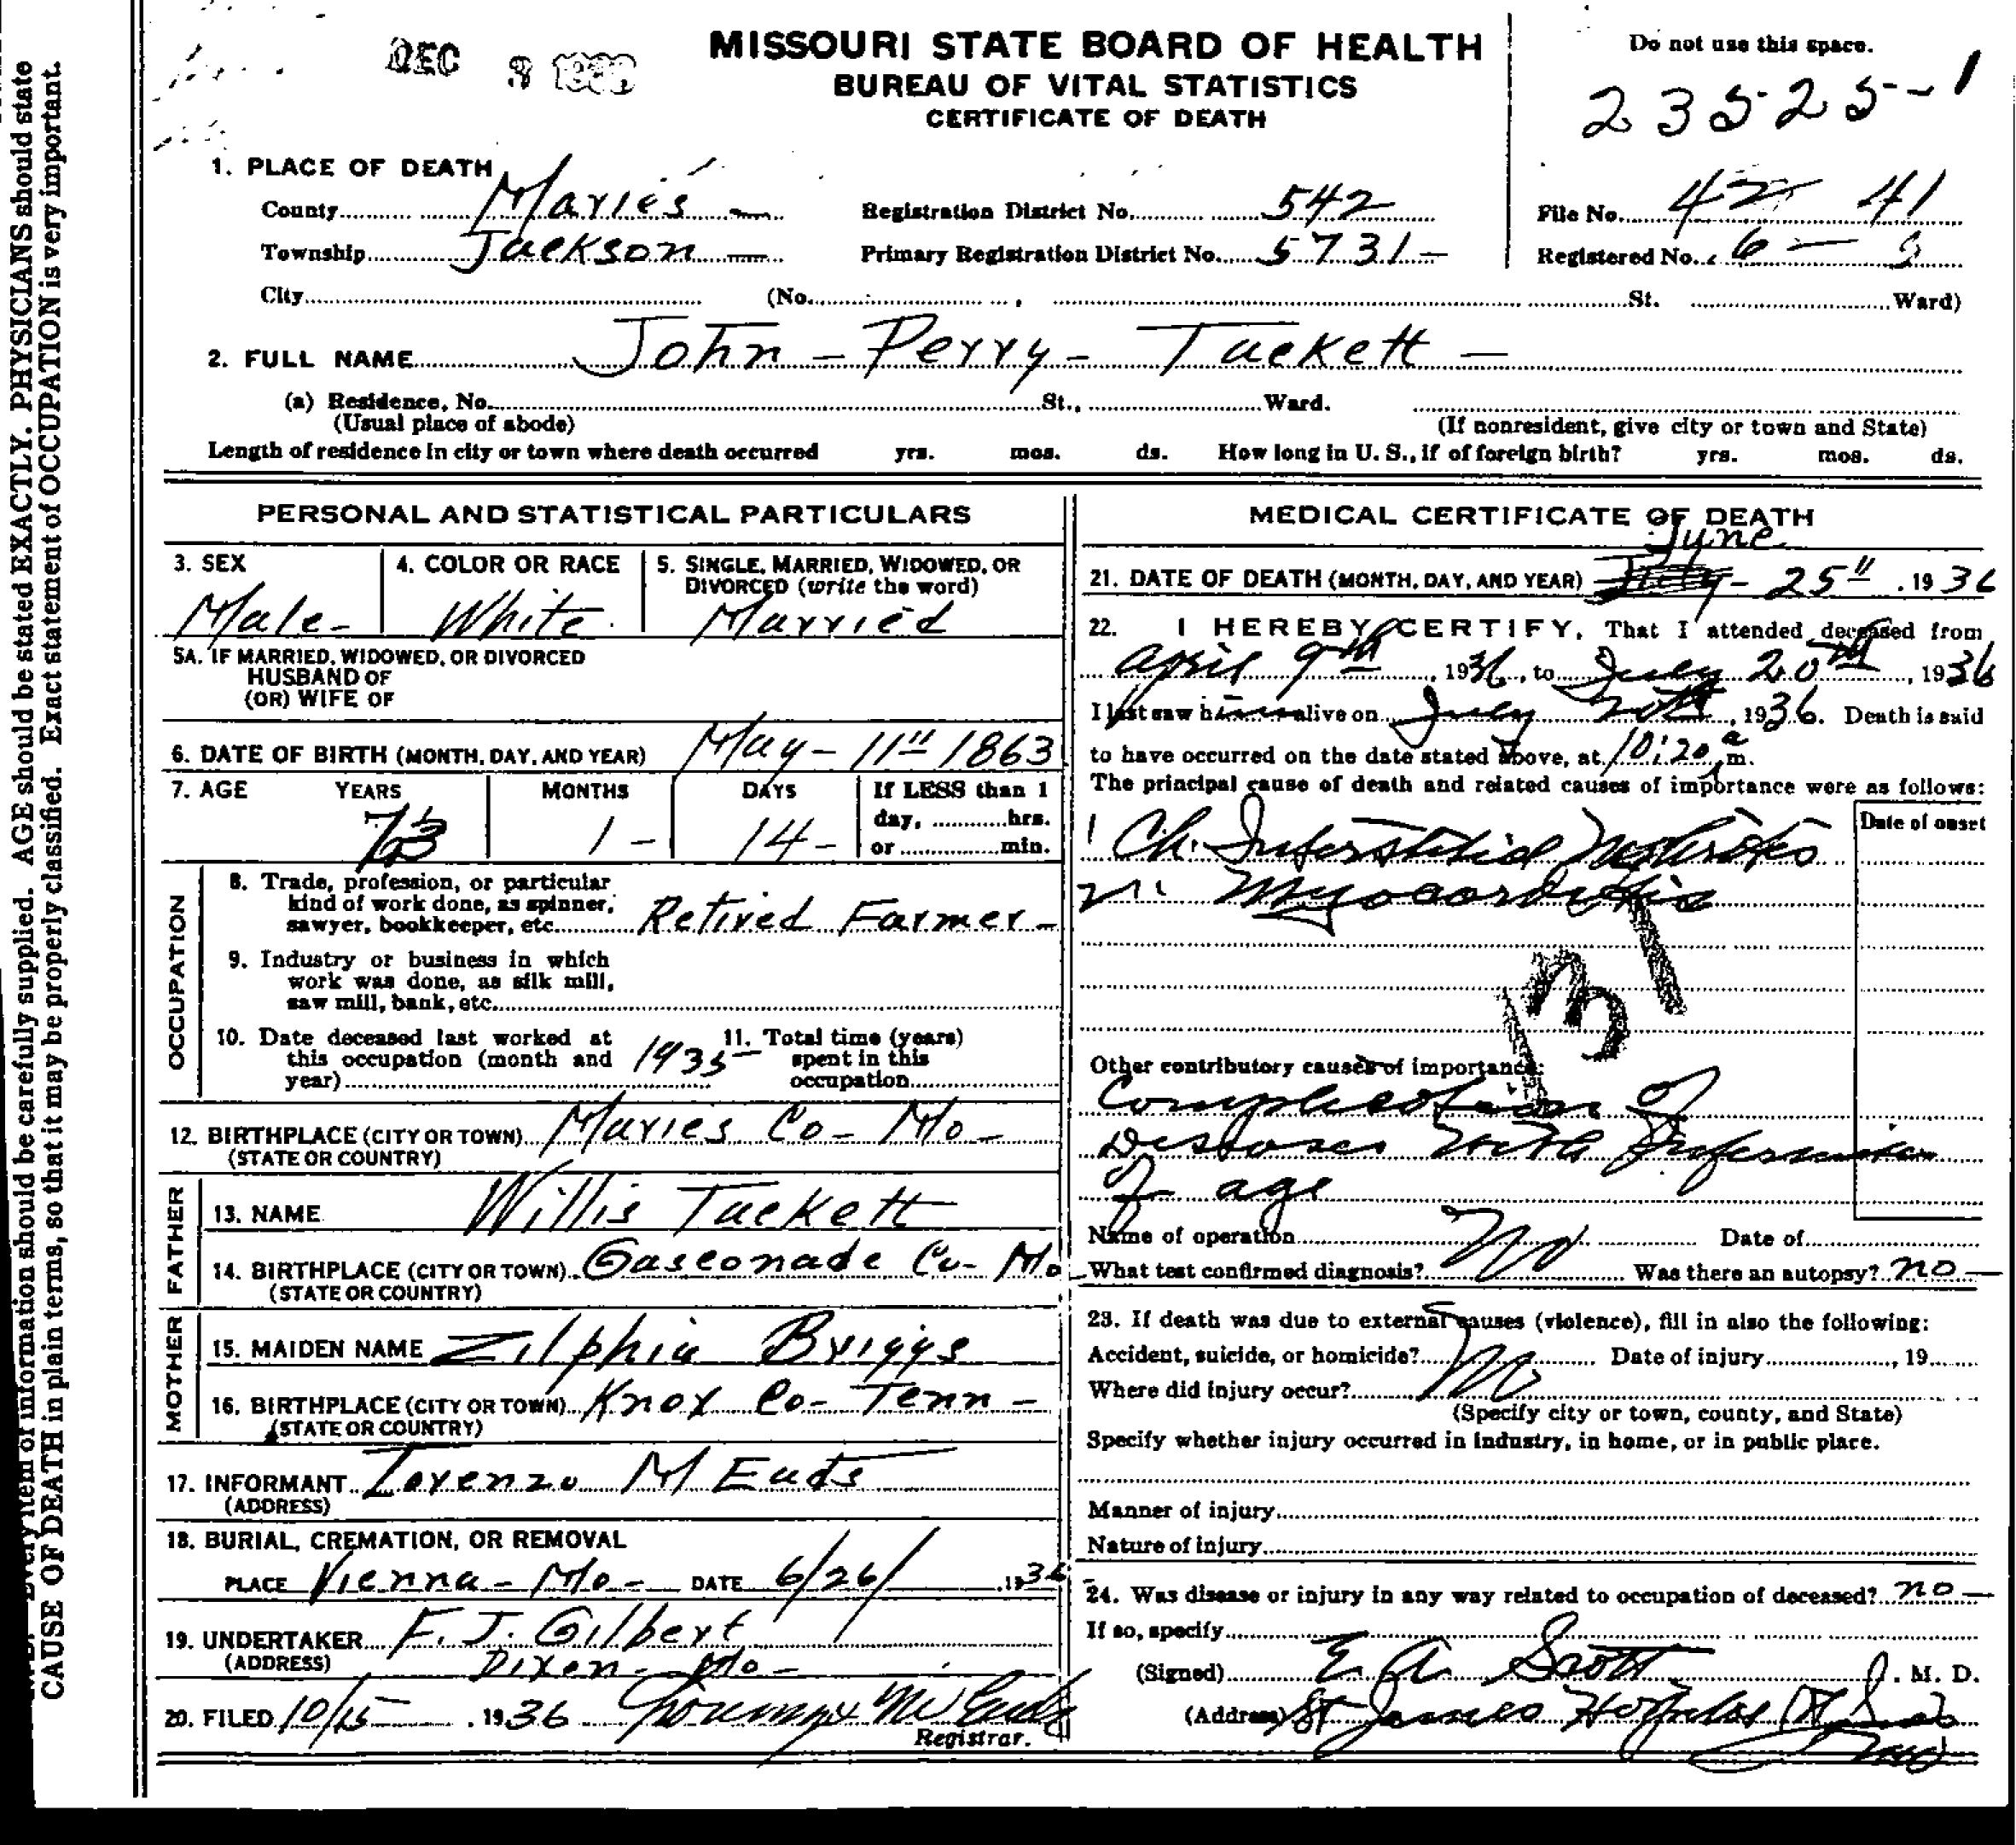 DEC 3 1936
MISSOURI STATE BOARD OF HEALTH
BUREAU OF VITAL STATISTICS
CERTIFICATE OF DEATH
Do not use this space.
23525-1
1. PLACE OF DEATH
County Maries Registration District No. 542 File No. 42 41
Township Jackson Primary Registration District No. 5731 Registered No. 6
City (No. , St. Ward)
2. FULL NAME John - Perry - Tackett -
(a) Residence, No. St., Ward.
(Usual place of abode) (If nonresident, give city or town and State)
Length of residence in city or town where death occurred yrs. mos. ds. How long in U. S., if of foreign birth? yrs. mos. ds.
PERSONAL AND STATISTICAL PARTICULARS
3. SEX 4. COLOR OR RACE 5. SINGLE, MARRIED, WIDOWED, OR
DIVORCED (write the word)
Male - White Married
5A. IF MARRIED, WIDOWED, OR DIVORCED
HUSBAND OF
(OR) WIFE OF
6. DATE OF BIRTH (MONTH, DAY, AND YEAR) May - 11" 1863
7. AGE YEARS MONTHS DAYS If LESS than 1
day, hrs.
or min.
73 1 - 14 -
OCCUPATION
8. Trade, profession, or particular
kind of work done, as spinner,
sawyer, bookkeeper, etc. Retired Farmer -
9. Industry or business in which
work was done, as silk mill,
saw mill, bank, etc.
10. Date deceased last worked at
this occupation (month and
year) 1935
11. Total time (years)
spent in this
occupation
12. BIRTHPLACE (CITY OR TOWN) Maries Co - Mo -
(STATE OR COUNTRY)
FATHER
13. NAME Willis Tackett
14. BIRTHPLACE (CITY OR TOWN) Gasconade Co - Mo
(STATE OR COUNTRY)
MOTHER
15. MAIDEN NAME Zilphia Briggs
16. BIRTHPLACE (CITY OR TOWN) Knox Co - Tenn -
(STATE OR COUNTRY)
17. INFORMANT Lorenzo M Eads
(ADDRESS)
18. BURIAL, CREMATION, OR REMOVAL
PLACE Vienna - Mo - DATE 6/26/ 1936
19. UNDERTAKER F. J. Gilbert
(ADDRESS) Dixon - Mo -
20. FILED 10/15 1936
Registrar.
MEDICAL CERTIFICATE OF DEATH
June
21. DATE OF DEATH (MONTH, DAY, AND YEAR) July - 25" . 1936
22. I HEREBY CERTIFY, That I attended deceased from
April 9th, 1936, to July 20th, 1936
I last saw him alive on July 20th, 1936. Death is said
to have occurred on the date stated above, at 10:20 a m.
The principal cause of death and related causes of importance were as follows:
Date of onset
Ch. Interstitial Nephritis
Myocarditis
131
Other contributory causes of importance:
Complication of
Diseases with
of age
Name of operation No Date of
What test confirmed diagnosis? Was there an autopsy? no
23. If death was due to external causes (violence), fill in also the following:
Accident, suicide, or homicide? No Date of injury , 19
Where did injury occur?
(Specify city or town, county, and State)
Specify whether injury occurred in industry, in home, or in public place.
Manner of injury
Nature of injury
24. Was disease or injury in any way related to occupation of deceased? no
If so, specify
(Signed) E. A. Scott , M. D.
(Address) St James Hospital
Every item of information should be carefully supplied. AGE should be stated EXACTLY. PHYSICIANS should state
CAUSE OF DEATH in plain terms, so that it may be properly classified. Exact statement of OCCUPATION is very important.